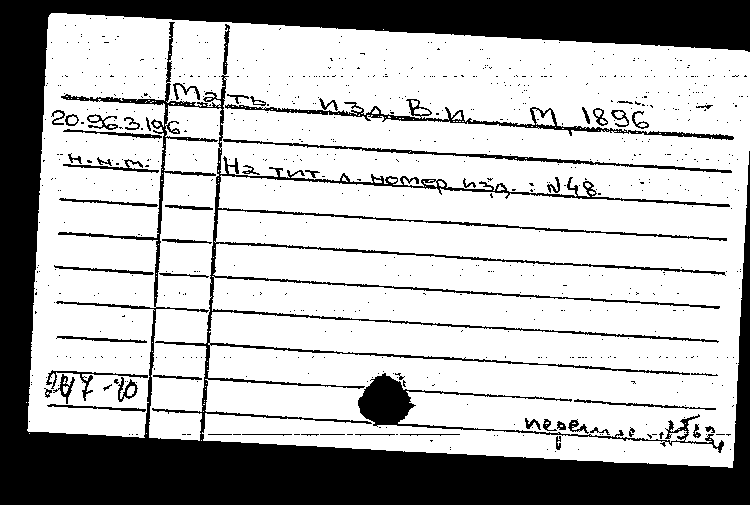 Мать изд. В. И. М, 1896
20.96.3.196.
н.н.м. На тит. л. номер изд. : N48.
247-70